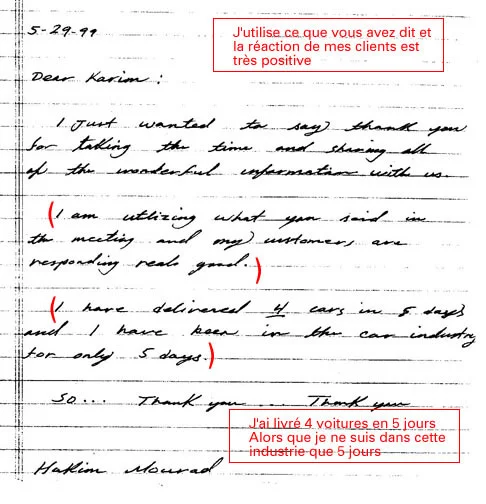 5-29-99
J'utilise ce que vous avez dit et
la réaction de mes clients est
très positive
Dear Karim:
I Just wanted to say thank you
for taking the time and sharing all
of the wonderful information with us.
(I am utlizing what you said in
the meeting and my customers, are
responding reals good.)
(I have delivered 4 cars in 5 days
and I have been in the car industry
for only 5 days.)
So... Thank you... Thank you
J'ai livré 4 voitures en 5 jours
Alors que je ne suis dans cette
industrie que 5 jours
Hakim Mourad